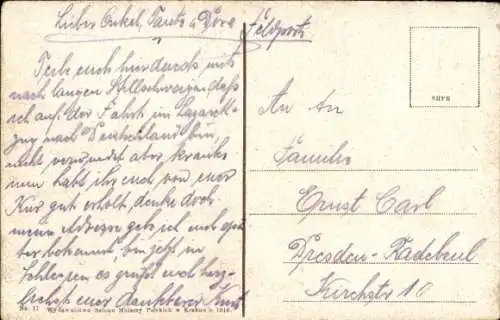 Lieber Onkel, Tante u Dora
Teile euch hierdurch mit
nach langen Stillschweigen daß
ich auf der Fahrt im Lazarett-
zug nach Deutschland bin,
nicht verwundet aber krank
nun habt ihr euch von eurer
Kur gut erholt, denke doch
meine Adresse gebe ich euch spä
ter bekannt bin jetzt in
Schlesien es grüßt euch herz-
lichst euer dankbarer
No. 17 Wydawnictwo Salonu Malarzy Polskich w Krakowie 1916.
Feldpost
An die
Familie
Ernst Carl
Dresden-Radebeul
Kirchstr 10